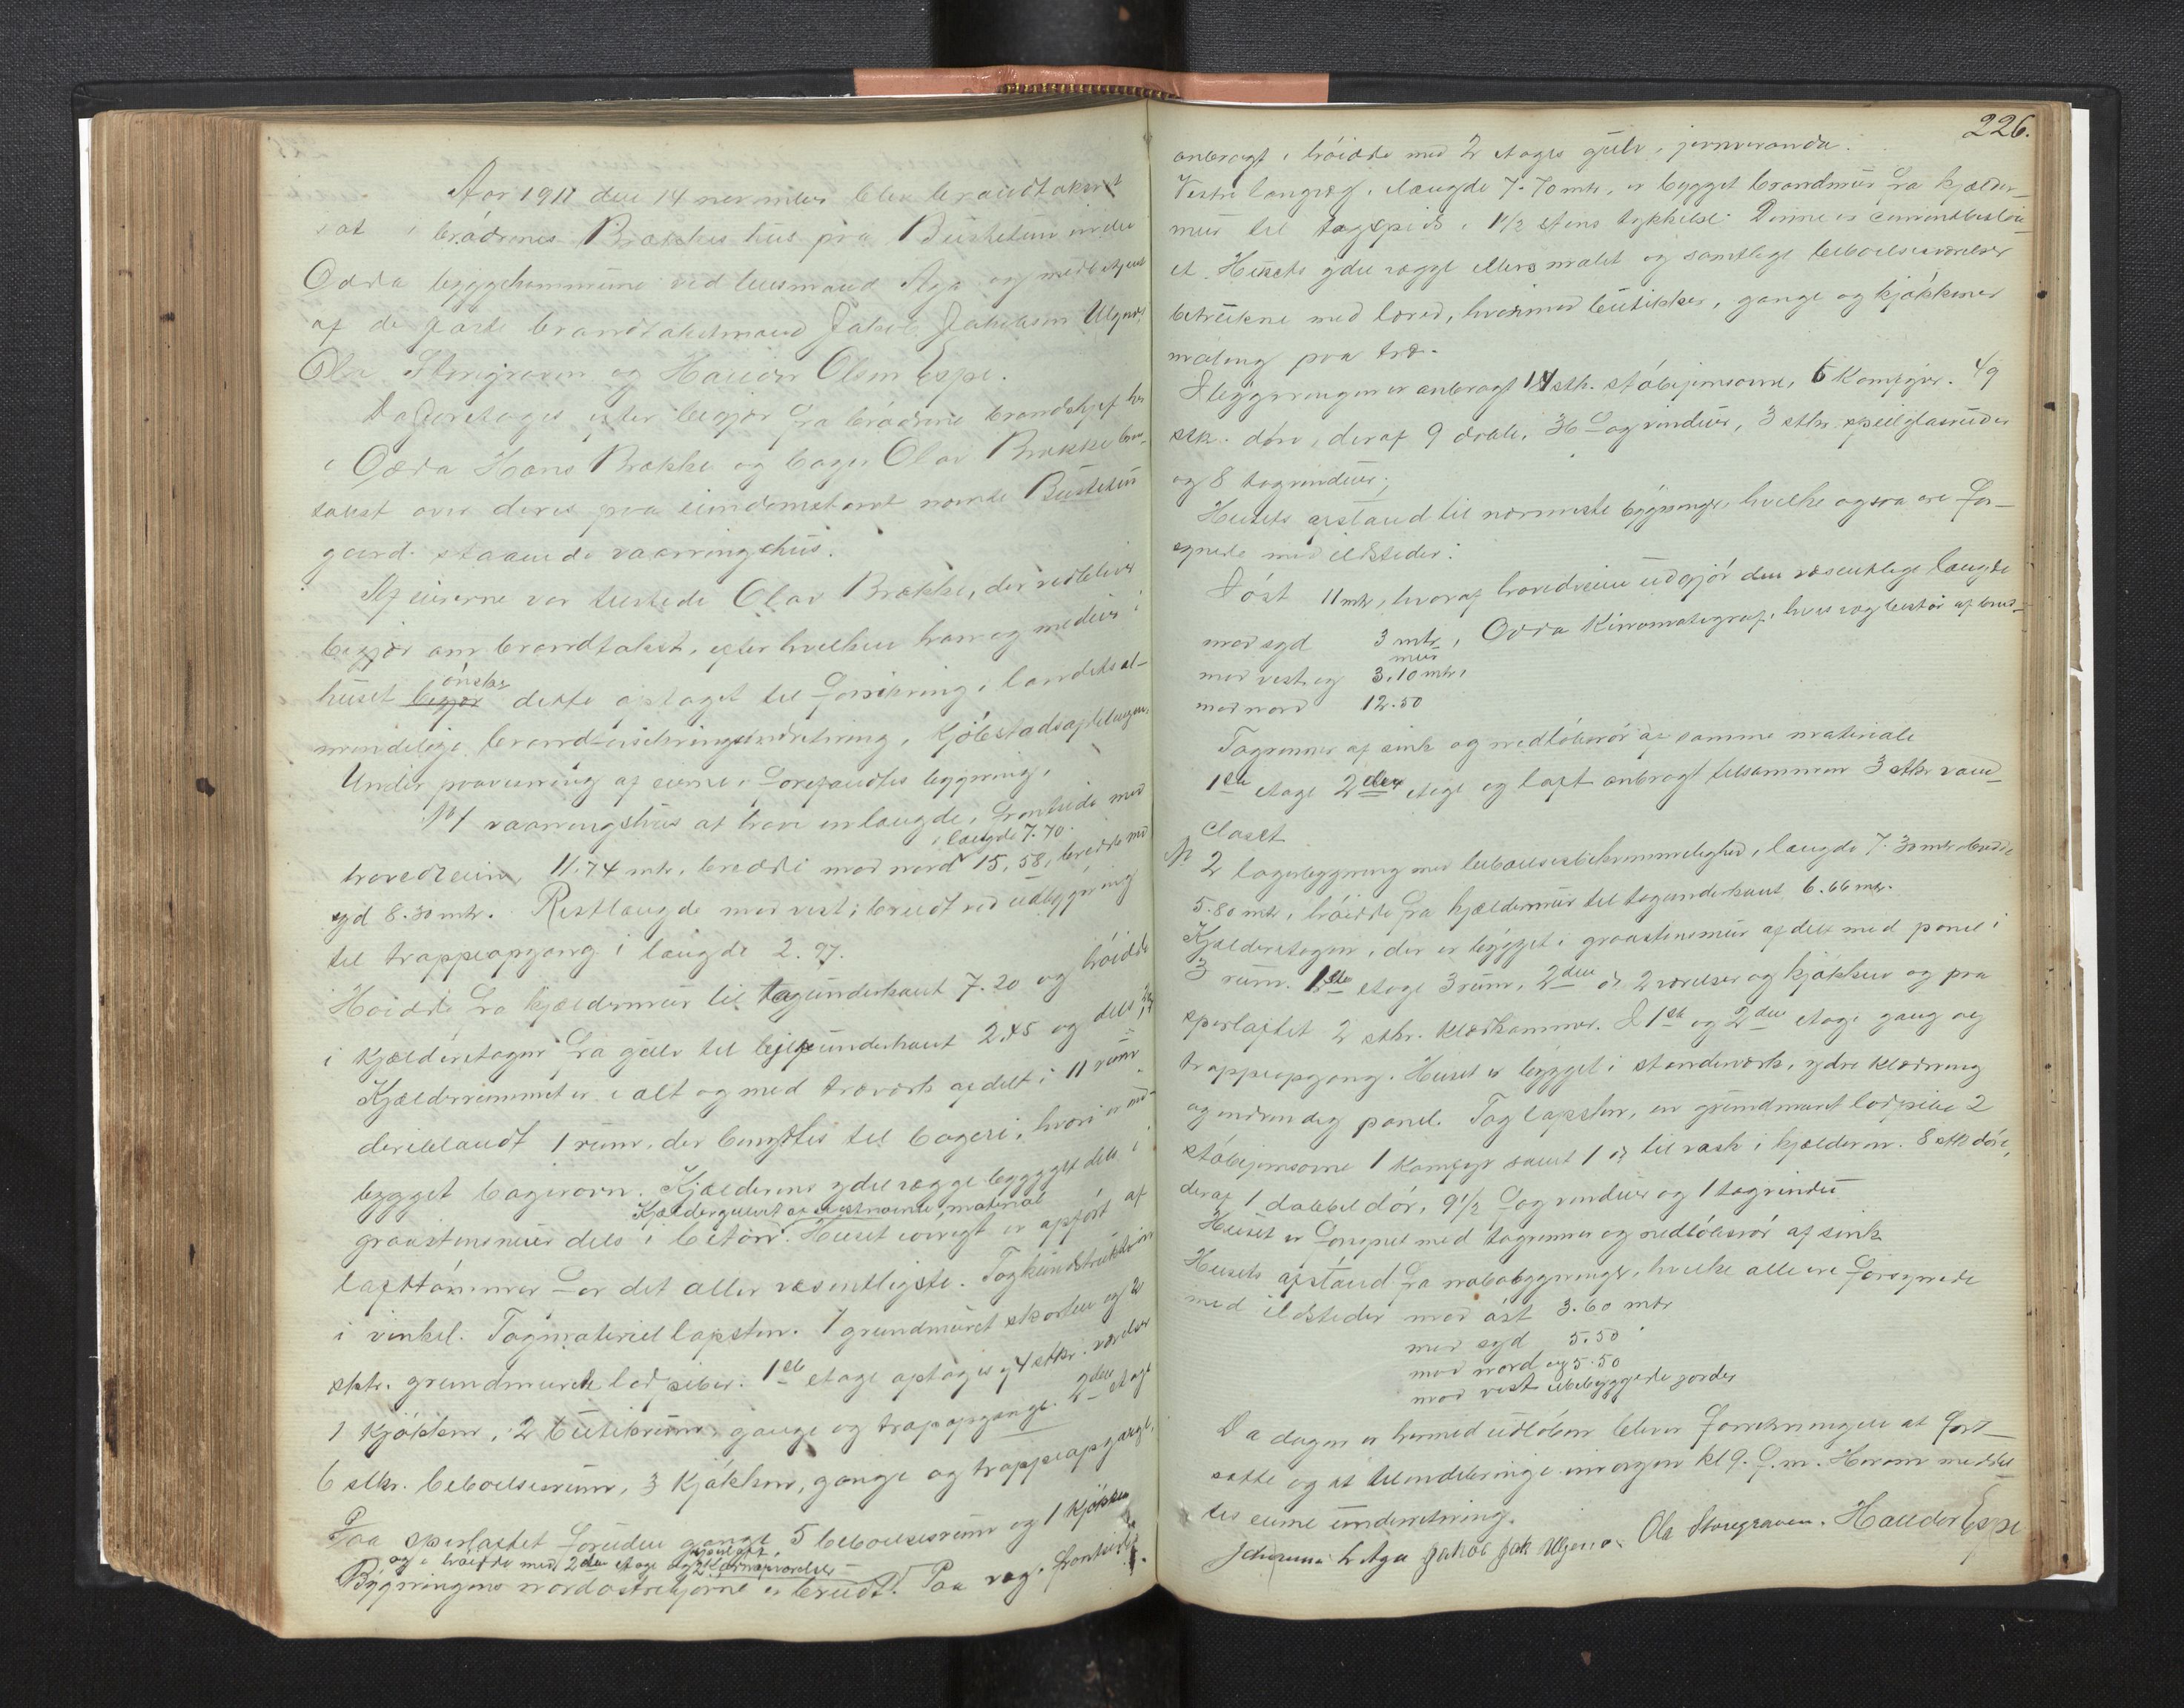 Aar 1911 den 14 november blev brandtakst
sat i brødrenes Brækkes hus paa Bustetun inden
Odda byggekommune ved lensmand Aga og medbetjent
af de faste brandtakstmænd Jakob Jakobsen Ulgenes
Ola Storegraven og Haldor Olsen Espe.
Da foretoges efter begjær fra brødrene brandchef
i Odda Hans Brække og bager Olav Brække bran-
takst over deres paa eiendomstomt nævnte Bustetun
gaard staaende vaaningshus.
Af eierne var tilstede Olav Brække, der vedblever
begjær om brandtakst, efter hvilken han og medeier i
huset begjær ønsker dette optaget til forsikring i landets al-
mindelige brandforsikringsindretning, kjøbstadsafdelingen.
Under paavisning af eierne forefandtes bygning,
No 1 vaaningshus at have en længde, frontside mod
hovedveien, 11.74 mtr, bredde mod nord i længde 7.70. 15.58, bredde mod
syd 8.30 mtr. Restlængde mod vest; brudt ved udbygning
til trappeopgang i længde 2.97.
Høide fra kjældermur til tagunderkant 7.20 og høide
i kjælderetagen fra gulv til bjelkeunderkant 2.45 og dels
Kjælderrummet er i alt og med træværk afdelt i 11 rum
deriblandt 1 rum, der benyttes til bageri, hvori er ind-
bygget bagerovn. Kjælderens ydre vægge bygget dels i
Kjældergulvet af sidstnævnte material
graastensmur dels i beton. Huset iøvrigt er opført af
lafttømmer for det aller væsentligste. Tagkonstruktion
i vinkel. Tagmateriel lapsten. 1 grundmuret skorsten og 2
stkr. grundmurede lodpiber. 1ste etage optages af 4 stkr. værelser
1 kjøkken, 2 butikrum, gange og trapopgange. 2den etage
6 stkr. beboelsesrum, 3 kjøkken, gange og trappeopgange,
Paa sperlaftet foruden gange 5 beboelsesrum og 1 kjøkken
og i høide med 2den etage og
Bygningens nordøstre hjørne er brudt. Paa væg. frontside
226.
anbragt i høide med 2 etages gulv, jernveranda.
Vestre langvæg, længde 7.70 mtr, er bygget brandmur fra kjælder-
mur til tagspids i 1½ stens tykkelse. Denne er cementbeslaa-
et. Husets ydre vægge ellers malet og samtlige beboelsesværelser
betrukne med lærred, hvorimod butikker, gange og kjøkkener
maling paa træ.
I bygningen er anbragt 14 stk. støbejernsovne, 6 Komfyrer. 49
stk. døre, deraf 9 doble, 36 fagvinduer, 3 stkr speilglasruder
og 8 tagvinduer;
Husets afstand til nærmeste bygninger, hvilke ogsaa ere for-
synede med ildsteder:
I øst 11 mtr, hvoraf hovedveien udgjør den væsentlige længde
mod syd 3 mtr, Odda Kinomatograf, hvis væg bestaar af brand-
mur
mod vest og 3.10 mtr,
mod nord 12.50
Tagrenner af sink og nedløbsrør af samme materiale
1ste etage 2den etage og loft anbragt tilsammen 3 stkr vand-
Closet
N 2 lagerbygning med beboelsesbekvemmelighed, længde 7.30 mtr bredde
5.80 mtr, høide fra kjældermur til tagunderkant 6.66 mtr.
Kjælderetagen, der er bygget i graastensmur afdelt med panel i
3 rum. 1ste etage 3 rum, 2den do 2 værelser og kjøkken og paa
sperlaftet 2 stkr. klædkammer. I 1ste og 2den etage gang og
trappeopgang. Huset er bygget i standerværk, ydre klædning
og indvendig panel. Tag lapsten, en grundmuret lodpibe 2
støbejernsovne 1 Komfyr samt 1 do til vask i kjælderen. 8 stk døre,
deraf 1 dobbel dør, 9½ fagvinduer og 1 tagvindu
Huset er forsynet med tagrenner og nedløbsrør af sink
Husets afstand fra nabobygninger, hvilke alle ere forsynede
med ildsteder mod øst 3.60 mtr
mod syd 5.50
mod nord og 5.50
mod vest ubebyggede jorder
Da dagen er hermed udløben blever forretningen at fort-
sætte og at tilendebringe imorgen kl 9. f.m. Herom meddel-
tes eierne underretning.
L Aga Jakob Jak Ulgenes Ola Storegraven. Haldor Espe